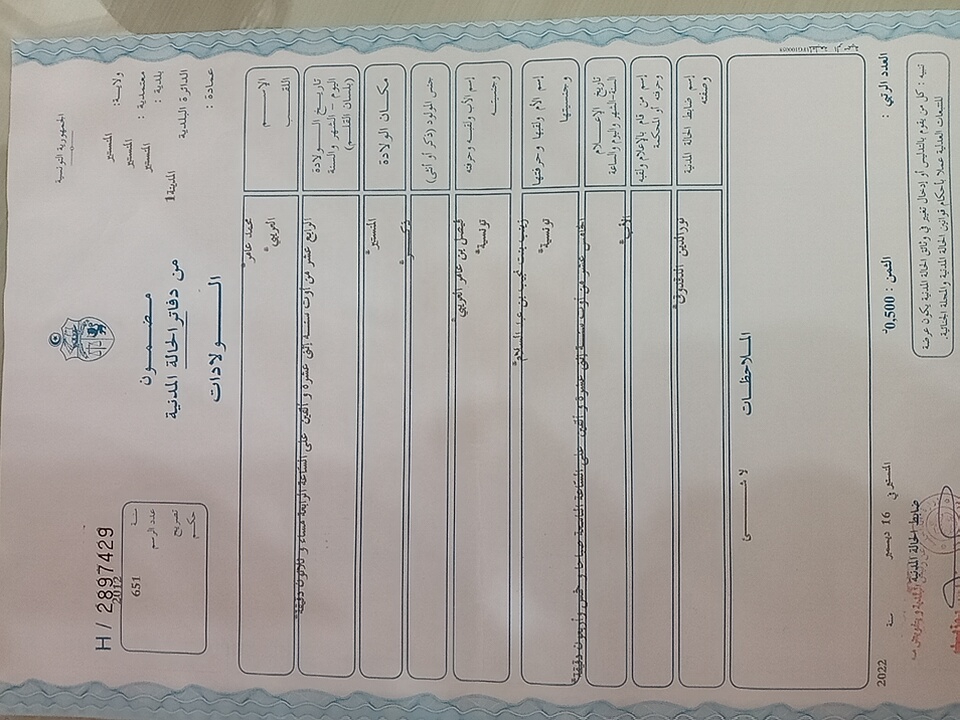 الجمهورية التونسية
ولاية: المنستير
معتمدية: المنستير
بلدية: المنستير
الدائرة البلدية
المدينة1
عمادة:
مضمون
من دفاتر الحالة المدنية
الولادات
H / 2897429
سنة 2012
عدد الرسم 651
تصريح
حكم
الاسم محمد عامر
اللقب العريبي
تاريخ الولادة
اليوم - الشهر والسنة
(بلسان القلم)
الرابع عشر من أوت سنة إثني عشرة و ألفين على الساعة الرابعة مساء و ثلاثون دقيقة
مكان الولادة المنستير
جنس المولود (ذكر أو أنثى) ذكر
إسم الأب ولقبه وحرفته فيصل بن عامر العريبي
وجنسيته تونسية
إسم الأم ولقبها وحرفتها زينب بنت نجيب بن عبد السلام
وجنسيتها تونسية
تاريخ الإعلام
السنة-الشهر واليوم والساعة
الخامس عشر من أوت سنة إثني عشرة و ألفين على الساعة التاسعة صباحا و خمس و أربعون دقيقة
إسم من قام بالإعلام ولقبه
وحرفته أو المحكمة
الأب
إسم ضابط الحالة المدنية
وصفته
نور الدين
الملاحظات
لا شيء
العدد الرتبي :
الثمن : 0,500
المنستير في 16 ديسمبر سنة 2022
ضابط الحالة المدنية
تنبيه : كل من يقوم بالتدليس أو إدخال تغيير في وثائق الحالة المدنية يكون عرضة
للتتبعات العدلية عملا بأحكام قوانين الحالة المدنية والمجلة الجنائية.